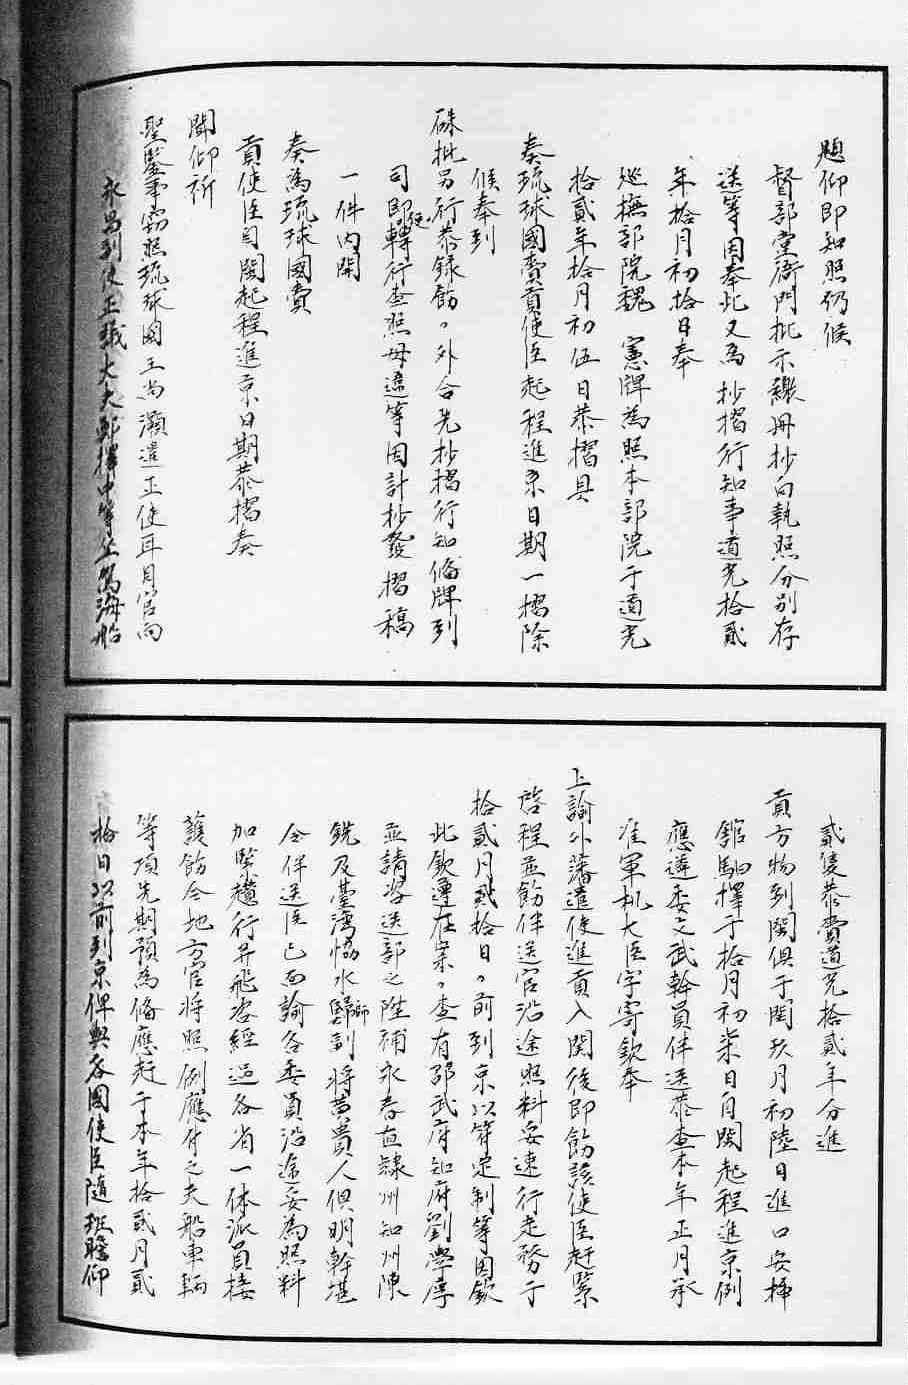 題仰即知照仍候
督部堂衙門批示繳冊抄白執照分別存
送等因奉此又為抄摺行知事道光拾貳
年拾月初拾日奉
巡撫部院魏　憲牌為照本部院于道光
拾貳年拾月初伍日恭摺具
奏琉球國賫貢使臣起程進京日期一摺除
候奉到
硃批另行恭錄飭々外合先抄摺行知備牌到
司即便轉行查照毋違等因計抄發摺稿
一件內開
奏為琉球國賫
貢使臣自閩起程進京日期恭摺奏
聞仰祈
聖鑒事竊照琉球國王尚灝遣正使耳目官向
永昌副使正議大夫鄭擇中等坐駕海船
貳隻恭賫道光拾貳年分進
貢方物到閩俱于閏玖月初陸日進口安插
館驛擇于拾月初柒日自閩起程進京例
應遴委文武幹員伴送恭查本年正月承
准軍机大臣字寄欽奉
上諭外藩遣使進貢入関後即飭該使臣赶緊
啓程並飭伴送官沿途照料妥速行走務于
拾貳月貳拾日々前到京以符定制等因欽
此欽遵在案々查有邵武府知府劉學厚
並請咨送部之陞補永春直隸州知州陳
銑及臺灣恊水師副將黃貴人俱明幹堪
令伴送臣已面諭各委員沿途妥為照料
加緊趲行并飛咨經過各省一体派員接
護飭令地方官將照例應付之夫船車輛
等項先期預為俻應赶于本年拾貳月貳
拾日以前到京俾與各國使臣隨班瞻仰